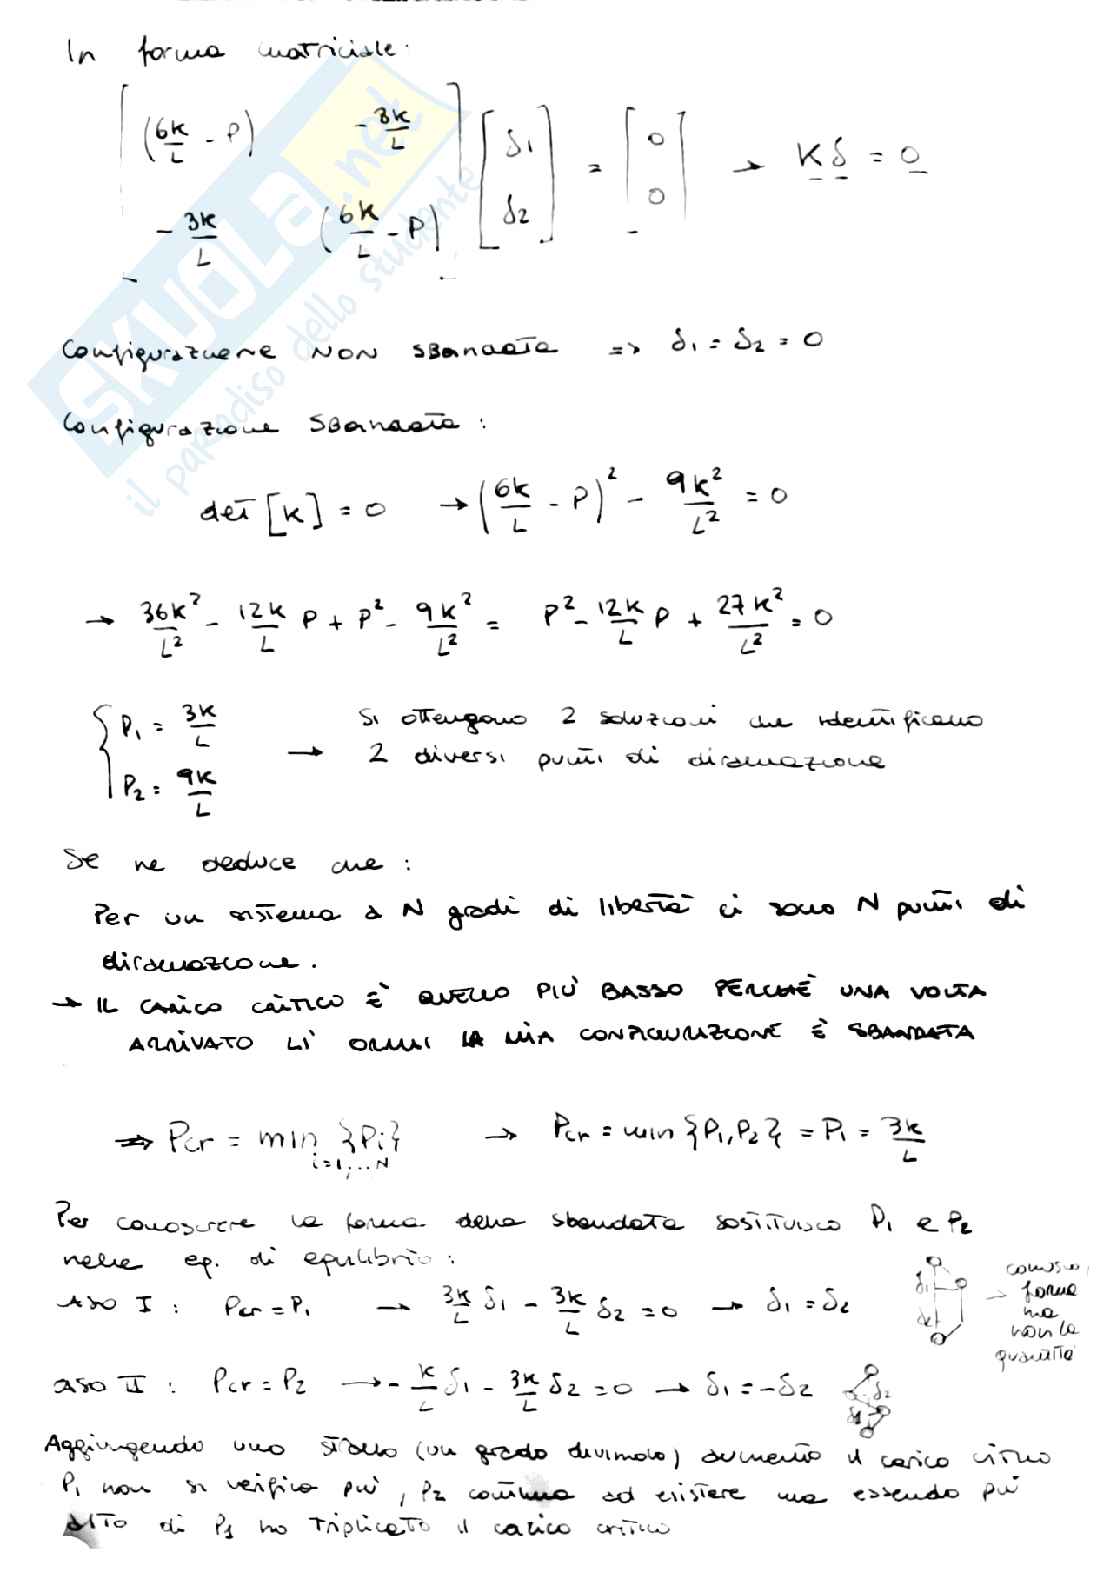 In forma matriciale:
[ (6K/L - P)   -3K/L ] [ δ1 ] = [ 0 ] → K δ = 0
[ -3K/L   (6K/L - P) ] [ δ2 ]   [ 0 ]
SKUOLA.net
il paradiso dello studente
Configurazione NON SBandata => δ1 = δ2 = 0
Configurazione SBandata :
det [K] = 0 → (6K/L - P)² - 9K²/L² = 0
→ 36K²/L² - 12K/L P + P² - 9K²/L² = P² - 12K/L P + 27K²/L² = 0
{ P1 = 3K/L → Si ottengono 2 soluzioni che identificano
{ P2 = 9K/L 2 diversi punti di diramazione
Se ne deduce che :
Per un sistema a N gradi di libertà ci sono N punti di
diramazione.
→ IL CARICO CRITICO È QUELLO PIÙ BASSO PERCHÈ UNA VOLTA
ARRIVATO LÌ ORMAI LA MIA CONFIGURAZIONE È SBANDATA
⇒ Pcr = min {Pi} i=1,...N → Pcr = min {P1, P2} = P1 = 3K/L
Per conoscere la forma della sbandata sostituisco P1 e P2
nelle eq. di equilibrio :
aso I : Pcr = P1 → 3K/L δ1 - 3K/L δ2 = 0 → δ1 = δ2
δ1
→ conosco
forma
ma
non la
quantità
aso II : Pcr = P2 → - K/L δ1 - 3K/L δ2 = 0 → δ1 = -δ2
δ2
Aggiungendo uno (un grado di vincolo) aumento il carico critico
P1 non si verifica più, P2 continua ad esistere ma essendo più
alto di P1 ho triplicato il carico critico